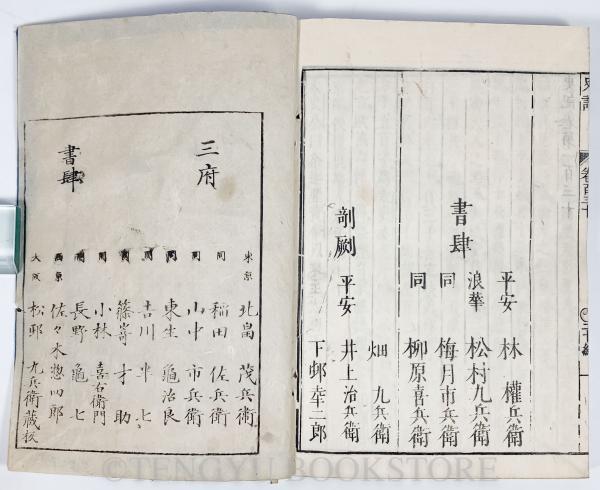 史記
卷百三十
書肆
平安 林 權兵衛
浪華 松村九兵衛
同 梅月市兵衛
同 柳原喜兵衛
剞劂
畑 九兵衛
平安 井上治兵衛
下邨幸二郎
三府
書肆
東京 北畠 茂兵衛
同 稲田 佐兵衛
同 山中 市兵衛
同 東生 亀治良
同 吉川 半七
同 篠嵜 才助
同 小林 喜右衛門
同 長野 亀七
西京 佐々木惣四郎
大坂 松邨 九兵衛蔵板
©TENGYU BOOKSTORE